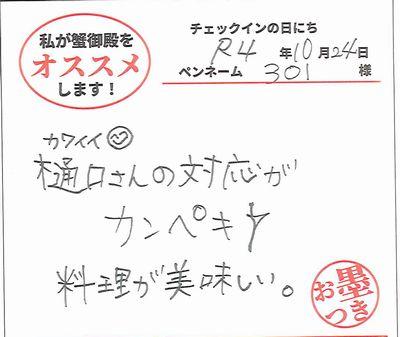 私が蟹御殿を
オススメ
します！
チェックインの日にち
R4年10月24日
ペンネーム 301 様
カワイイ
樋口さんの対応が
カンペキ
料理が美味しい。
お墨つき